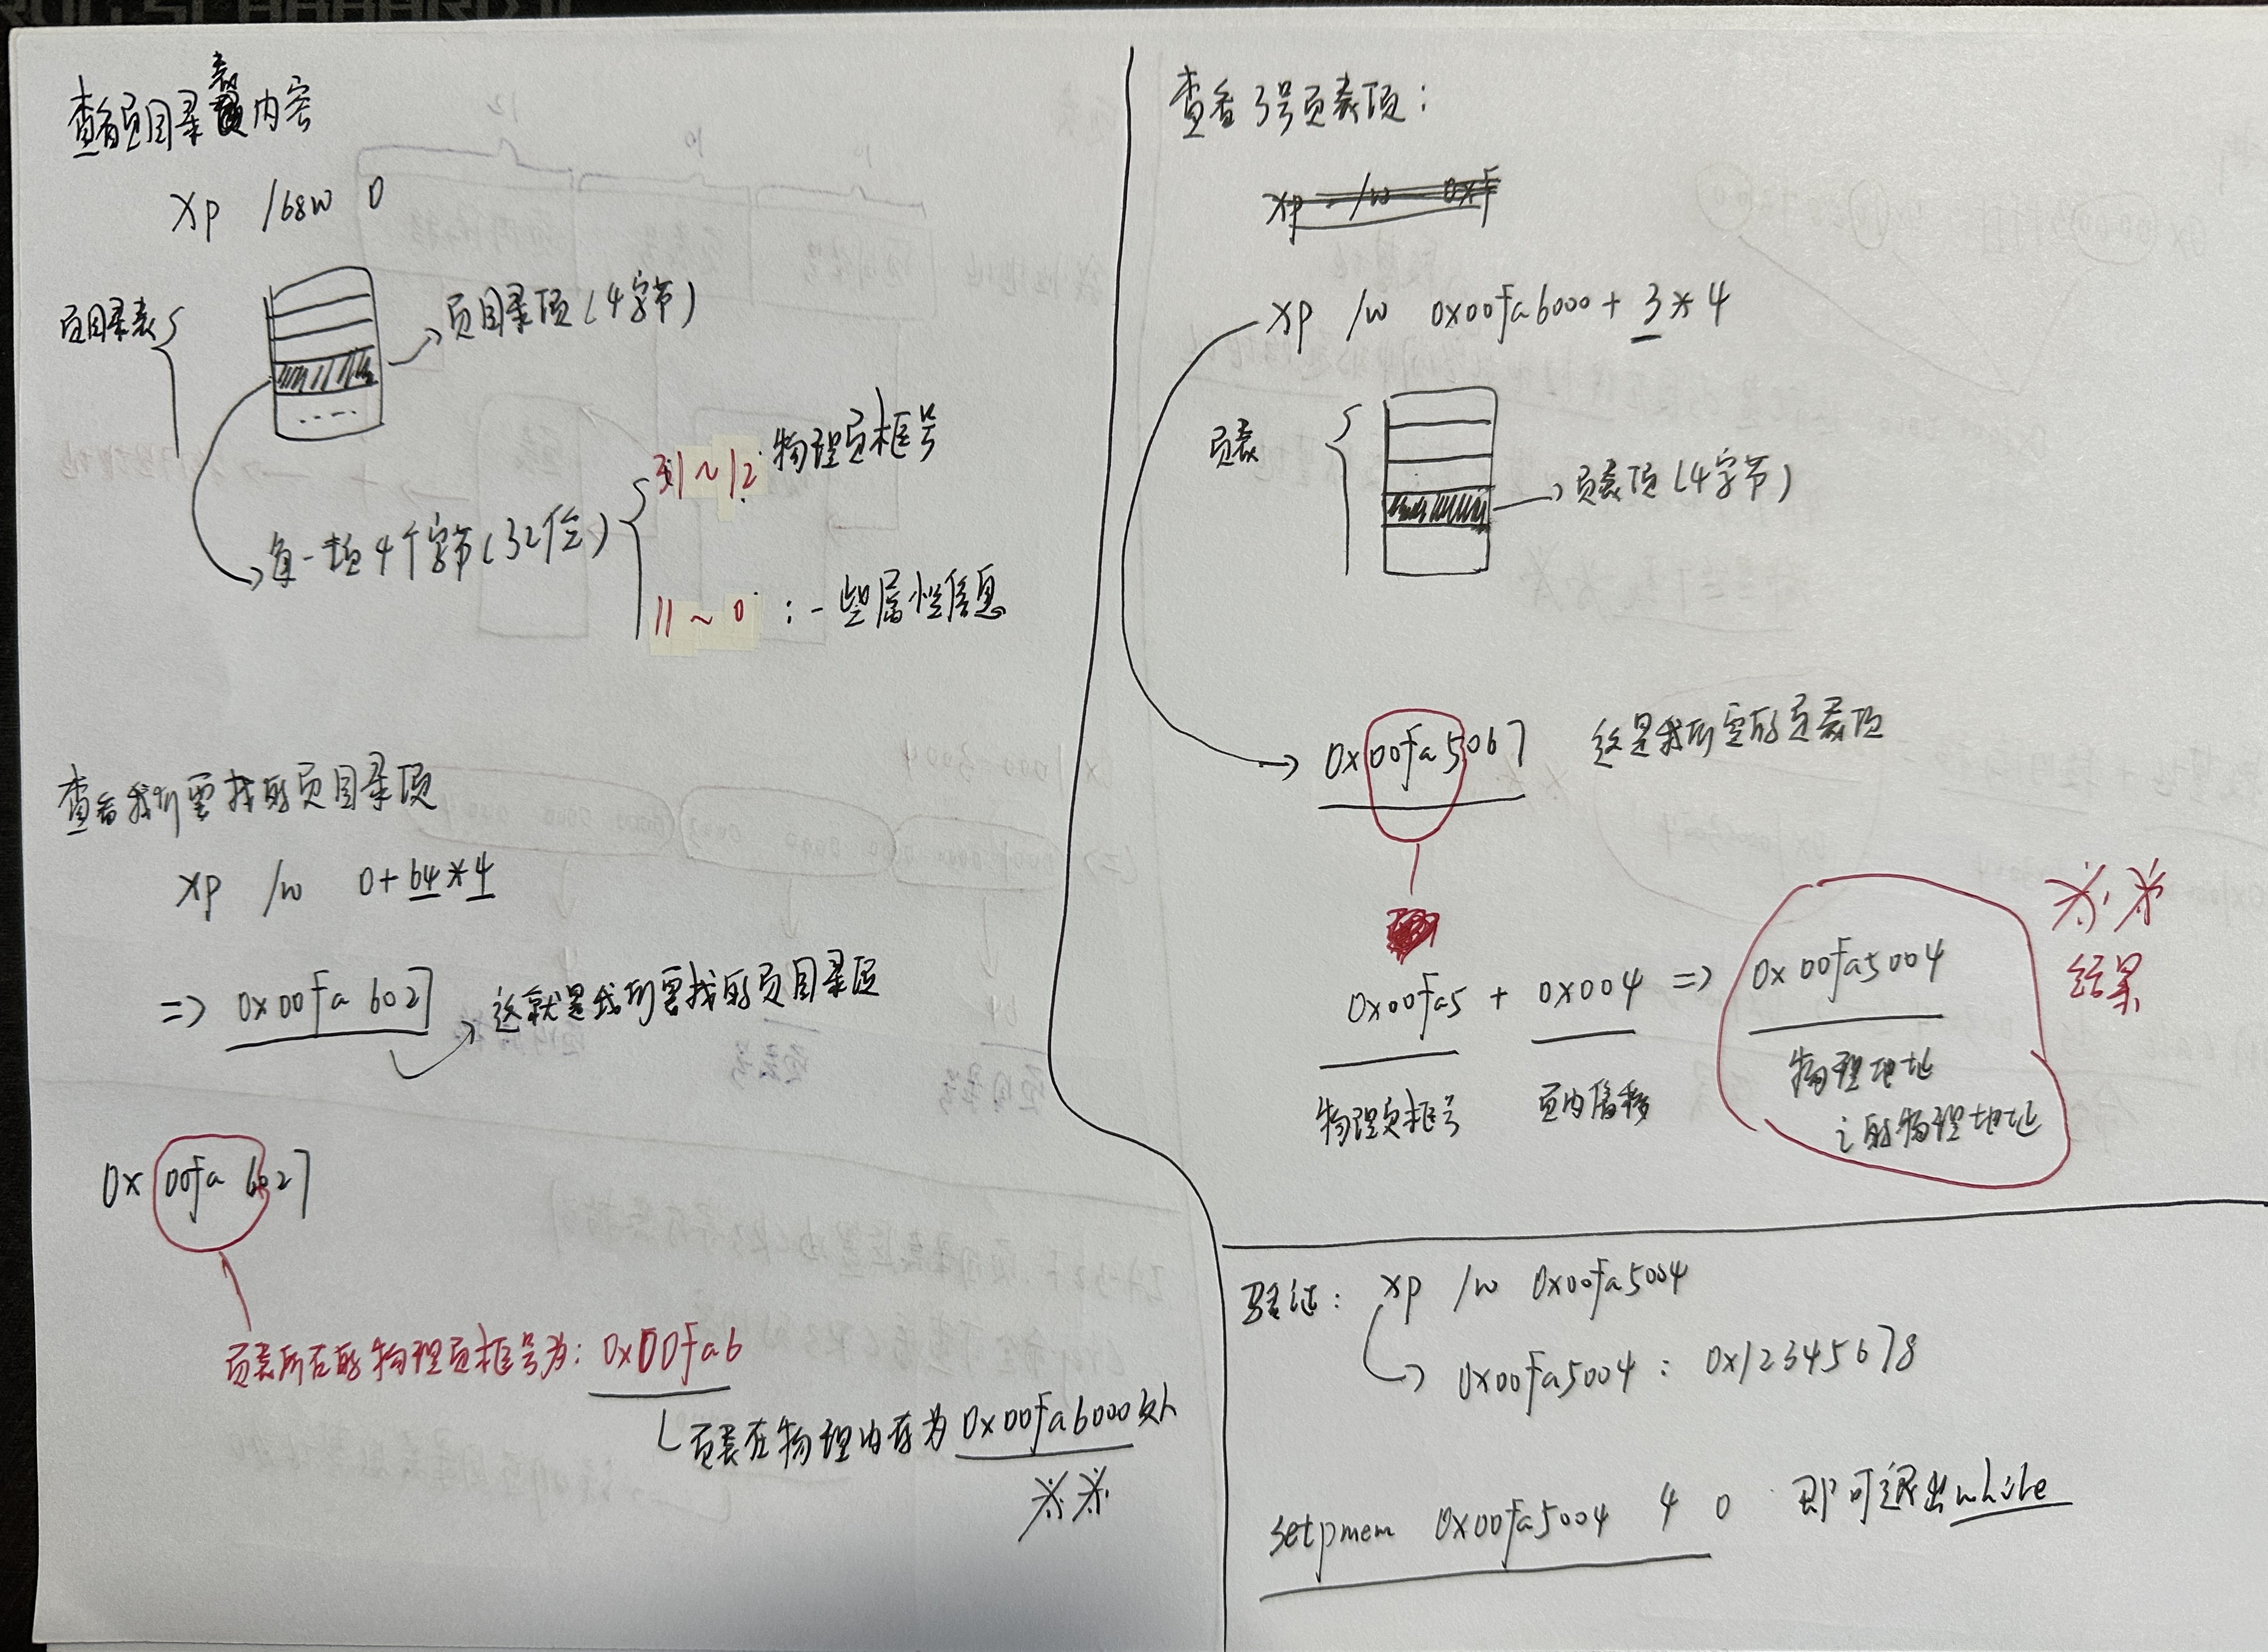 查看页目录表内容
xp /68w 0
页目录表
页目录项(4字节)
每一项4个字节(32位)
31~12 物理页框号
11~0 :一些属性信息
查看我所要找的页目录项
xp /w 0+64*4
=> 0x00fa6027
这就是我所要找的页目录项
0x00fa6027
页表所在的物理页框号为: 0x00fa6
页表在物理内存为 0x00fa6000 处
查看3号页表项:
xp /w 0xf
xp /w 0x00fa6000 + 3*4
页表
页表项(4字节)
0x00fa5067 这是我所要的页表项
0x00fa5 + 0x004 => 0x00fa5004
物理页框号 页内偏移 物理地址
i的物理地址
结果
验证: xp /w 0x00fa5004
0x00fa5004 : 0x12345678
setpmem 0x00fa5004 4 0 即可退出while